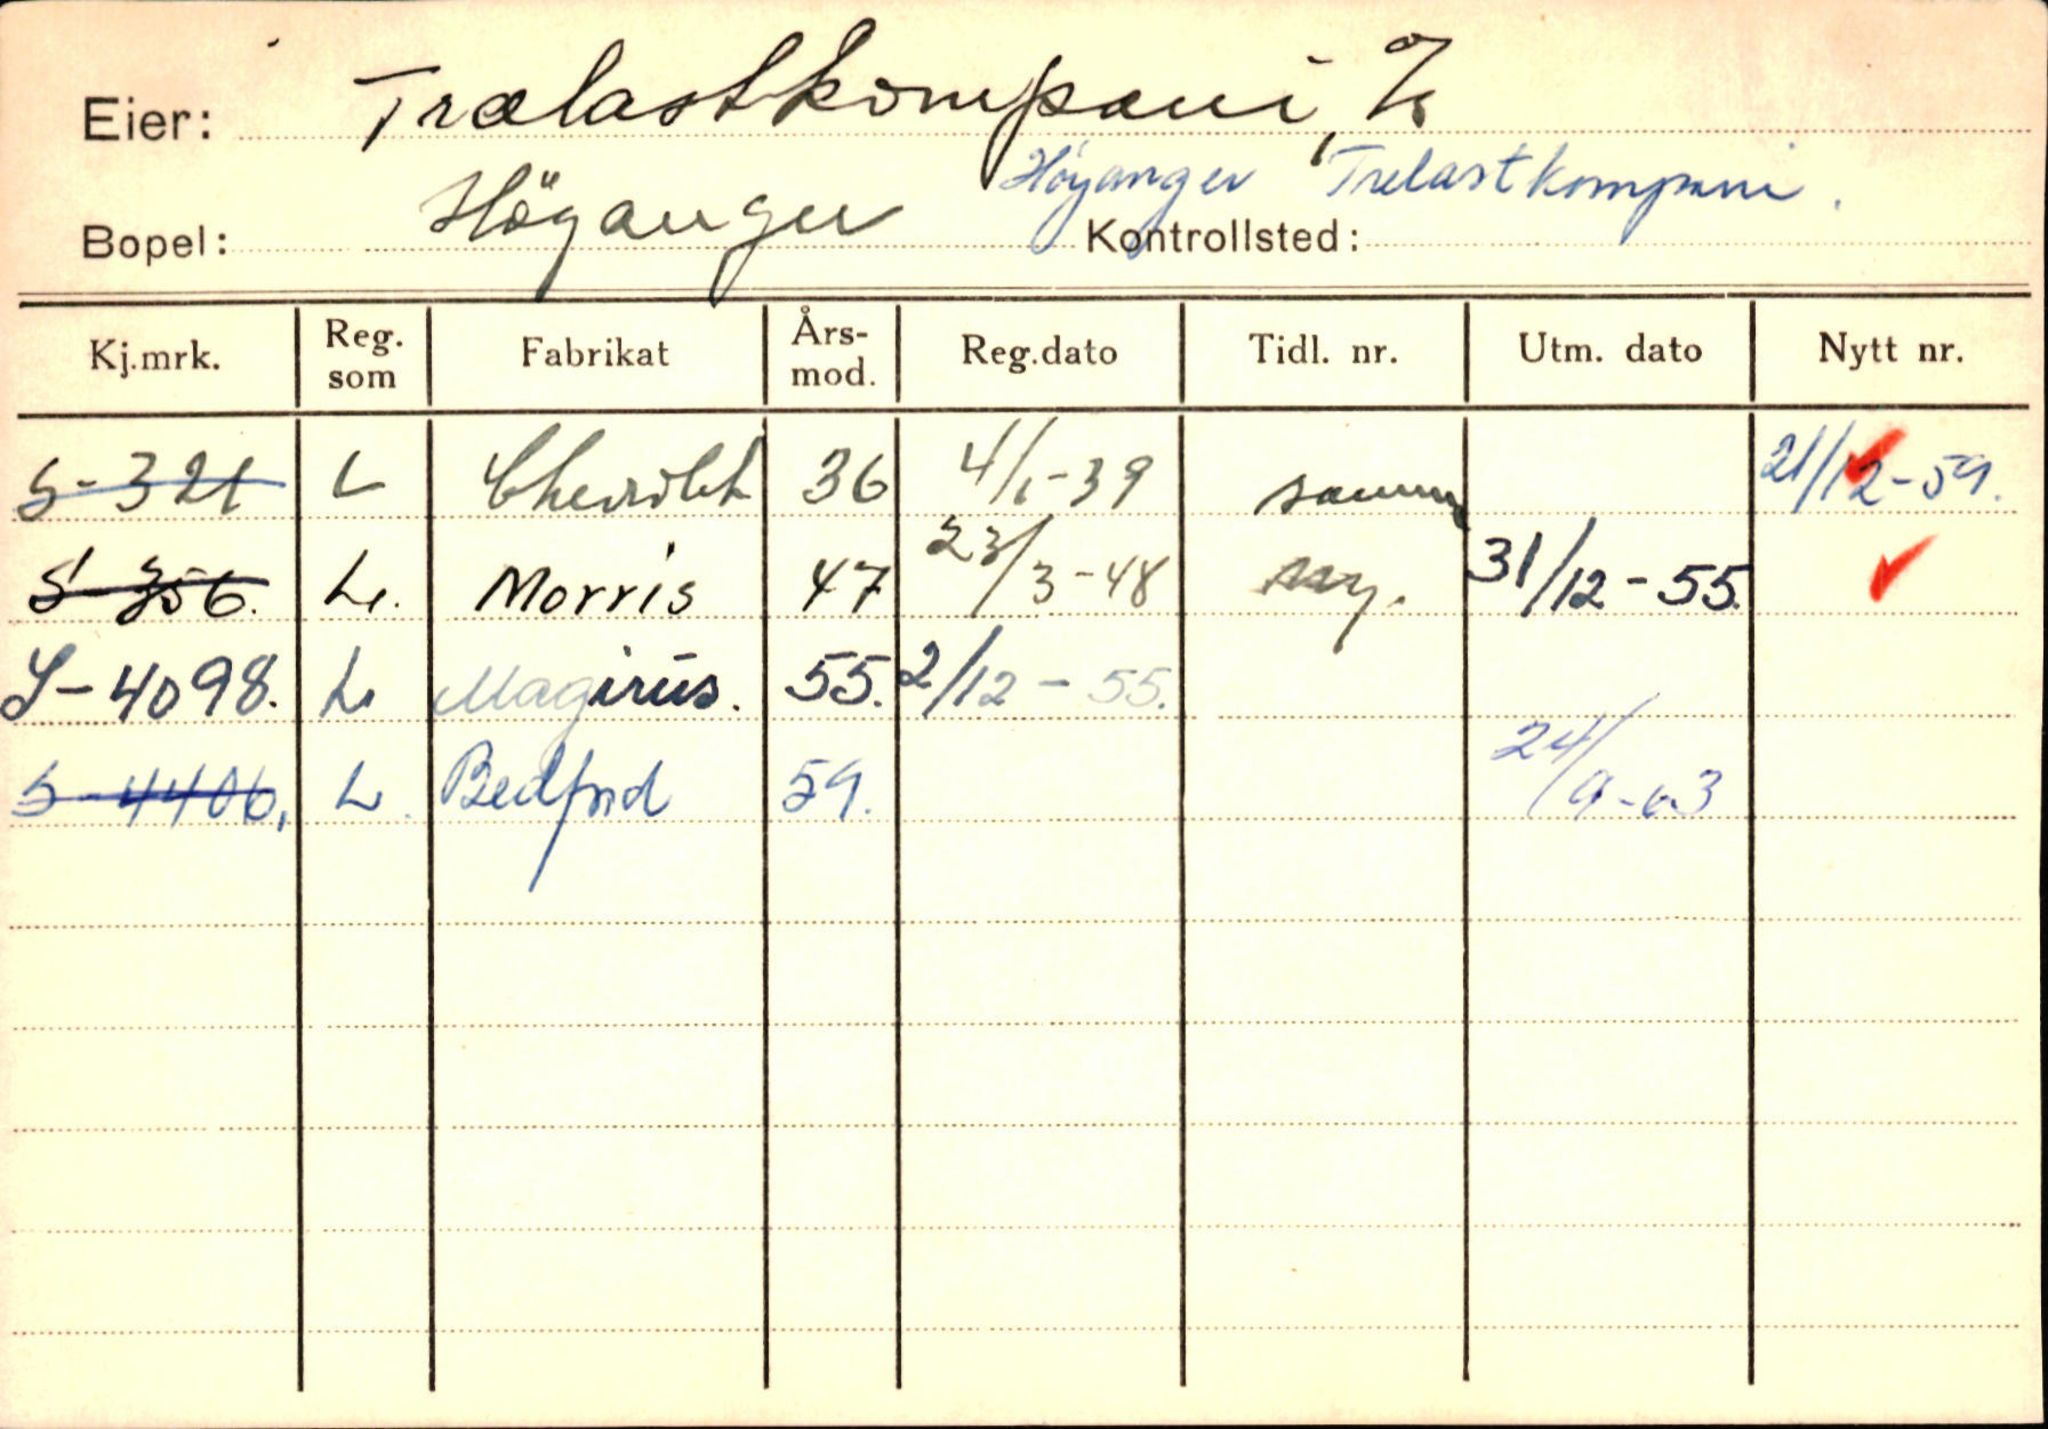 Eier: Trælastkompani, A/S
Høyanger Trelastkompani.
Bopel: Höyanger Kontrollsted:
Kj.mrk. Reg. som Fabrikat Års-mod. Reg.dato Tidl. nr. Utm. dato Nytt nr.
S-321 L Chevrolet 36 4/1-39 samme 21/12-59.
S-356. L. Morris 47 23/3-48 ny. 31/12-55.
S-4098. L Magirus. 55. 2/12-55.
S-4406. L. Bedford 59. 24/9-63